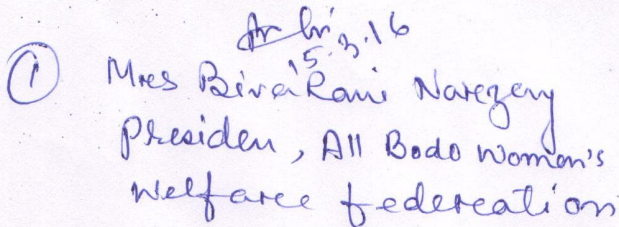 15.3.16
① Mrs Birai Rani Narezary
Presiden, All Bodo Women's
Welfaree federeation